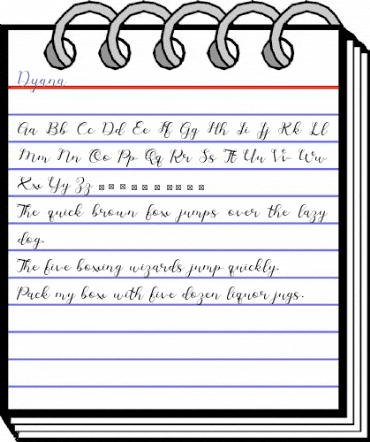 Dyana
Aa Bb Cc Dd Ee Ff Gg Hh Ii Jj Kk Ll
Mm Nn Oo Pp Qq Rr Ss Tt Uu Vv Ww
Xx Yy Zz
The quick brown fox jumps over the lazy
dog.
The five boxing wizards jump quickly.
Pack my box with five dozen liquor jugs.